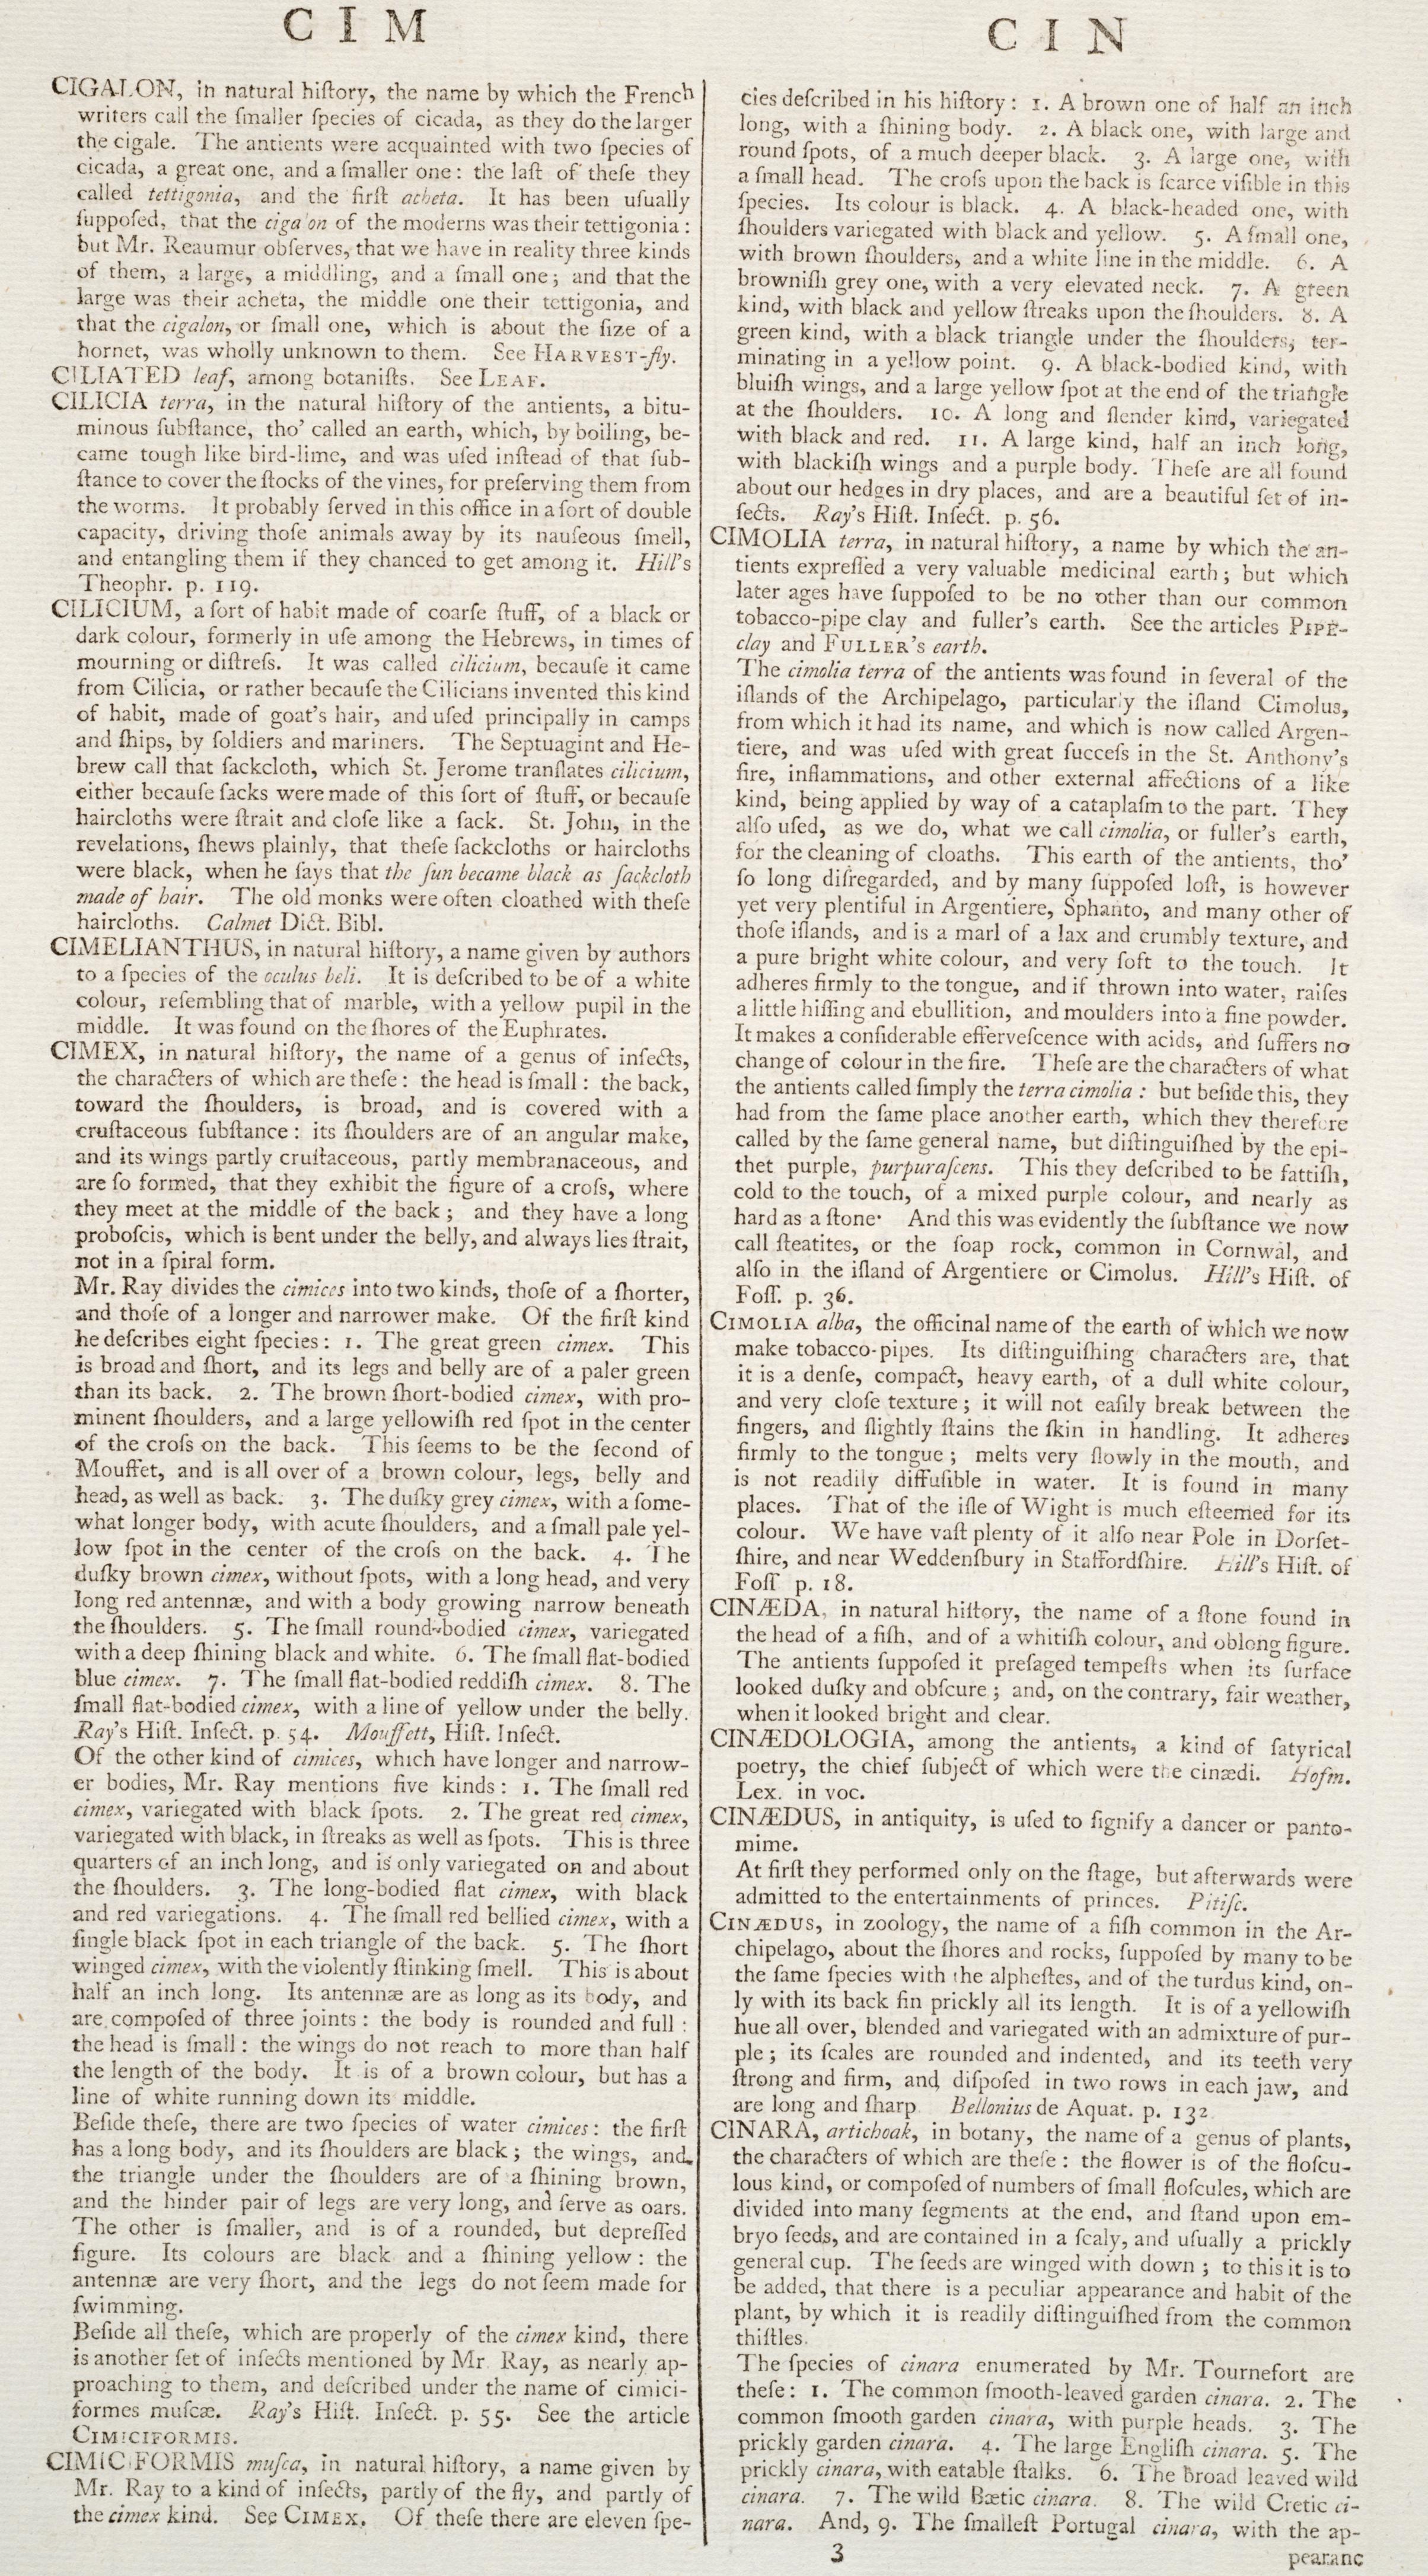 C I M
CIGALON, in natural hiſtory, the name by which the French
writers call the ſmaller ſpecies of cicada, as they do the larger
the cigale. The antients were acquainted with two ſpecies of
cicada, a great one, and a ſmaller one: the laſt of theſe they
called tettigonia, and the firſt acheta. It has been uſually
ſuppoſed, that the ciga'on of the moderns was their tettigonia:
but Mr. Reaumur obſerves, that we have in reality three kinds
of them, a large, a middling, and a ſmall one; and that the
large was their acheta, the middle one their tettigonia, and
that the cigalon, or ſmall one, which is about the ſize of a
hornet, was wholly unknown to them. See HARVEST-fly.
CILIATED leaf, among botaniſts. See LEAF.
CILICIA terra, in the natural hiſtory of the antients, a bitu-
minous ſubſtance, tho' called an earth, which, by boiling, be-
came tough like bird-lime, and was uſed inſtead of that ſub-
ſtance to cover the ſtocks of the vines, for preſerving them from
the worms. It probably ſerved in this office in a ſort of double
capacity, driving thoſe animals away by its nauſeous ſmell,
and entangling them if they chanced to get among it. Hill's
Theophr. p. 119.
CILICIUM, a ſort of habit made of coarſe ſtuff, of a black or
dark colour, formerly in uſe among the Hebrews, in times of
mourning or diſtreſs. It was called cilicium, becauſe it came
from Cilicia, or rather becauſe the Cilicians invented this kind
of habit, made of goat's hair, and uſed principally in camps
and ſhips, by ſoldiers and mariners. The Septuagint and He-
brew call that ſackcloth, which St. Jerome tranſlates cilicium,
either becauſe ſacks were made of this ſort of ſtuff, or becauſe
haircloths were ſtrait and cloſe like a ſack. St. John, in the
revelations, ſhews plainly, that theſe ſackcloths or haircloths
were black, when he ſays that the ſun became black as ſackcloth
made of hair. The old monks were often cloathed with theſe
haircloths. Calmet Dict. Bibl.
CIMELIANTHUS, in natural hiſtory, a name given by authors
to a ſpecies of the oculus beli. It is deſcribed to be of a white
colour, reſembling that of marble, with a yellow pupil in the
middle. It was found on the ſhores of the Euphrates.
CIMEX, in natural hiſtory, the name of a genus of inſects,
the characters of which are theſe: the head is ſmall: the back,
toward the ſhoulders, is broad, and is covered with a
cruſtaceous ſubſtance: its ſhoulders are of an angular make,
and its wings partly cruſtaceous, partly membranaceous, and
are ſo formed, that they exhibit the figure of a croſs, where
they meet at the middle of the back; and they have a long
proboſcis, which is bent under the belly, and always lies ſtrait,
not in a ſpiral form.
Mr. Ray divides the cimices into two kinds, thoſe of a ſhorter,
and thoſe of a longer and narrower make. Of the firſt kind
he deſcribes eight ſpecies: 1. The great green cimex. This
is broad and ſhort, and its legs and belly are of a paler green
than its back. 2. The brown ſhort-bodied cimex, with pro-
minent ſhoulders, and a large yellowiſh red ſpot in the center
of the croſs on the back. This ſeems to be the ſecond of
Mouffet, and is all over of a brown colour, legs, belly and
head, as well as back. 3. The duſky grey cimex, with a ſome-
what longer body, with acute ſhoulders, and a ſmall pale yel-
low ſpot in the center of the croſs on the back. 4. The
duſky brown cimex, without ſpots, with a long head, and very
long red antennæ, and with a body growing narrow beneath
the ſhoulders. 5. The ſmall round-bodied cimex, variegated
with a deep ſhining black and white. 6. The ſmall flat-bodied
blue cimex. 7. The ſmall flat-bodied reddiſh cimex. 8. The
ſmall flat-bodied cimex, with a line of yellow under the belly.
Ray's Hiſt. Inſect. p. 54. Mouffett, Hiſt. Inſect.
Of the other kind of cimices, which have longer and narrow-
er bodies, Mr. Ray mentions five kinds: 1. The ſmall red
cimex, variegated with black ſpots. 2. The great red cimex,
variegated with black, in ſtreaks as well as ſpots. This is three
quarters of an inch long, and is only variegated on and about
the ſhoulders. 3. The long-bodied flat cimex, with black
and red variegations. 4. The ſmall red bellied cimex, with a
ſingle black ſpot in each triangle of the back. 5. The ſhort
winged cimex, with the violently ſtinking ſmell. This is about
half an inch long. Its antennæ are as long as its body, and
are compoſed of three joints: the body is rounded and full:
the head is ſmall: the wings do not reach to more than half
the length of the body. It is of a brown colour, but has a
line of white running down its middle.
Beſide theſe, there are two ſpecies of water cimices: the firſt
has a long body, and its ſhoulders are black; the wings, and
the triangle under the ſhoulders are of a ſhining brown,
and the hinder pair of legs are very long, and ſerve as oars.
The other is ſmaller, and is of a rounded, but depreſſed
figure. Its colours are black and a ſhining yellow: the
antennæ are very ſhort, and the legs do not ſeem made for
ſwimming.
Beſide all theſe, which are properly of the cimex kind, there
is another ſet of inſects mentioned by Mr. Ray, as nearly ap-
proaching to them, and deſcribed under the name of cimici-
formes muſcæ. Ray's Hiſt. Inſect. p. 55. See the article
CIMICIFORMIS.
CIMICIFORMIS muſca, in natural hiſtory, a name given by
Mr. Ray to a kind of inſects, partly of the fly, and partly of
the cimex kind. See CIMEX. Of theſe there are eleven ſpe-
C I N
cies deſcribed in his hiſtory: 1. A brown one of half an inch
long, with a ſhining body. 2. A black one, with large and
round ſpots, of a much deeper black. 3. A large one, with
a ſmall head. The croſs upon the back is ſcarce viſible in this
ſpecies. Its colour is black. 4. A black-headed one, with
ſhoulders variegated with black and yellow. 5. A ſmall one,
with brown ſhoulders, and a white line in the middle. 6. A
browniſh grey one, with a very elevated neck. 7. A green
kind, with black and yellow ſtreaks upon the ſhoulders. 8. A
green kind, with a black triangle under the ſhoulders, ter-
minating in a yellow point. 9. A black-bodied kind, with
bluiſh wings, and a large yellow ſpot at the end of the triangle
at the ſhoulders. 10. A long and ſlender kind, variegated
with black and red. 11. A large kind, half an inch long,
with blackiſh wings and a purple body. Theſe are all found
about our hedges in dry places, and are a beautiful ſet of in-
ſects. Ray's Hiſt. Inſect. p. 56.
CIMOLIA terra, in natural hiſtory, a name by which the an-
tients expreſſed a very valuable medicinal earth; but which
later ages have ſuppoſed to be no other than our common
tobacco-pipe clay and fuller's earth. See the articles PIPE-
clay and FULLER's earth.
The cimolia terra of the antients was found in ſeveral of the
iſlands of the Archipelago, particularly the iſland Cimolus,
from which it had its name, and which is now called Argen-
tiere, and was uſed with great ſucceſs in the St. Anthony's
fire, inflammations, and other external affections of a like
kind, being applied by way of a cataplaſm to the part. They
alſo uſed, as we do, what we call cimolia, or fuller's earth,
for the cleaning of cloaths. This earth of the antients, tho'
ſo long diſregarded, and by many ſuppoſed loſt, is however
yet very plentiful in Argentiere, Sphanto, and many other of
thoſe iſlands, and is a marl of a lax and crumbly texture, and
a pure bright white colour, and very ſoft to the touch. It
adheres firmly to the tongue, and if thrown into water, raiſes
a little hiſſing and ebullition, and moulders into a fine powder.
It makes a conſiderable efferveſcence with acids, and ſuffers no
change of colour in the fire. Theſe are the characters of what
the antients called ſimply the terra cimolia: but beſide this, they
had from the ſame place another earth, which they therefore
called by the ſame general name, but diſtinguiſhed by the epi-
thet purple, purpuraſcens. This they deſcribed to be fattiſh,
cold to the touch, of a mixed purple colour, and nearly as
hard as a ſtone. And this was evidently the ſubſtance we now
call ſteatites, or the ſoap rock, common in Cornwal, and
alſo in the iſland of Argentiere or Cimolus. Hill's Hiſt. of
Foſſ. p. 36.
CIMOLIA alba, the officinal name of the earth of which we now
make tobacco-pipes. Its diſtinguiſhing characters are, that
it is a denſe, compact, heavy earth, of a dull white colour,
and very cloſe texture; it will not eaſily break between the
fingers, and ſlightly ſtains the ſkin in handling. It adheres
firmly to the tongue; melts very ſlowly in the mouth, and
is not readily diffuſible in water. It is found in many
places. That of the iſle of Wight is much eſteemed for its
colour. We have vaſt plenty of it alſo near Pole in Dorſet-
ſhire, and near Weddenſbury in Staffordſhire. Hill's Hiſt. of
Foſſ p. 18.
CINÆDA, in natural hiſtory, the name of a ſtone found in
the head of a fiſh, and of a whitiſh colour, and oblong figure.
The antients ſuppoſed it preſaged tempeſts when its ſurface
looked duſky and obſcure; and, on the contrary, fair weather,
when it looked bright and clear.
CINÆDOLOGIA, among the antients, a kind of ſatyrical
poetry, the chief ſubject of which were the cinædi. Hofm.
Lex. in voc.
CINÆDUS, in antiquity, is uſed to ſignify a dancer or panto-
mime.
At firſt they performed only on the ſtage, but afterwards were
admitted to the entertainments of princes. Pitiſc.
CINÆDUS, in zoology, the name of a fiſh common in the Ar-
chipelago, about the ſhores and rocks, ſuppoſed by many to be
the ſame ſpecies with the alpheſtes, and of the turdus kind, on-
ly with its back fin prickly all its length. It is of a yellowiſh
hue all over, blended and variegated with an admixture of pur-
ple; its ſcales are rounded and indented, and its teeth very
ſtrong and firm, and diſpoſed in two rows in each jaw, and
are long and ſharp Bellonius de Aquat. p. 132
CINARA, artichoak, in botany, the name of a genus of plants,
the characters of which are theſe: the flower is of the floſcu-
lous kind, or compoſed of numbers of ſmall floſcules, which are
divided into many ſegments at the end, and ſtand upon em-
bryo ſeeds, and are contained in a ſcaly, and uſually a prickly
general cup. The ſeeds are winged with down; to this it is to
be added, that there is a peculiar appearance and habit of the
plant, by which it is readily diſtinguiſhed from the common
thiſtles.
The ſpecies of cinara enumerated by Mr. Tournefort are
theſe: 1. The common ſmooth-leaved garden cinara. 2. The
common ſmooth garden cinara, with purple heads. 3. The
prickly garden cinara. 4. The large Engliſh cinara. 5. The
prickly cinara, with eatable ſtalks. 6. The broad leaved wild
cinara. 7. The wild Bætic cinara. 8. The wild Cretic ci-
nara. And, 9. The ſmalleſt Portugal cinara, with the ap-
3
pearanc